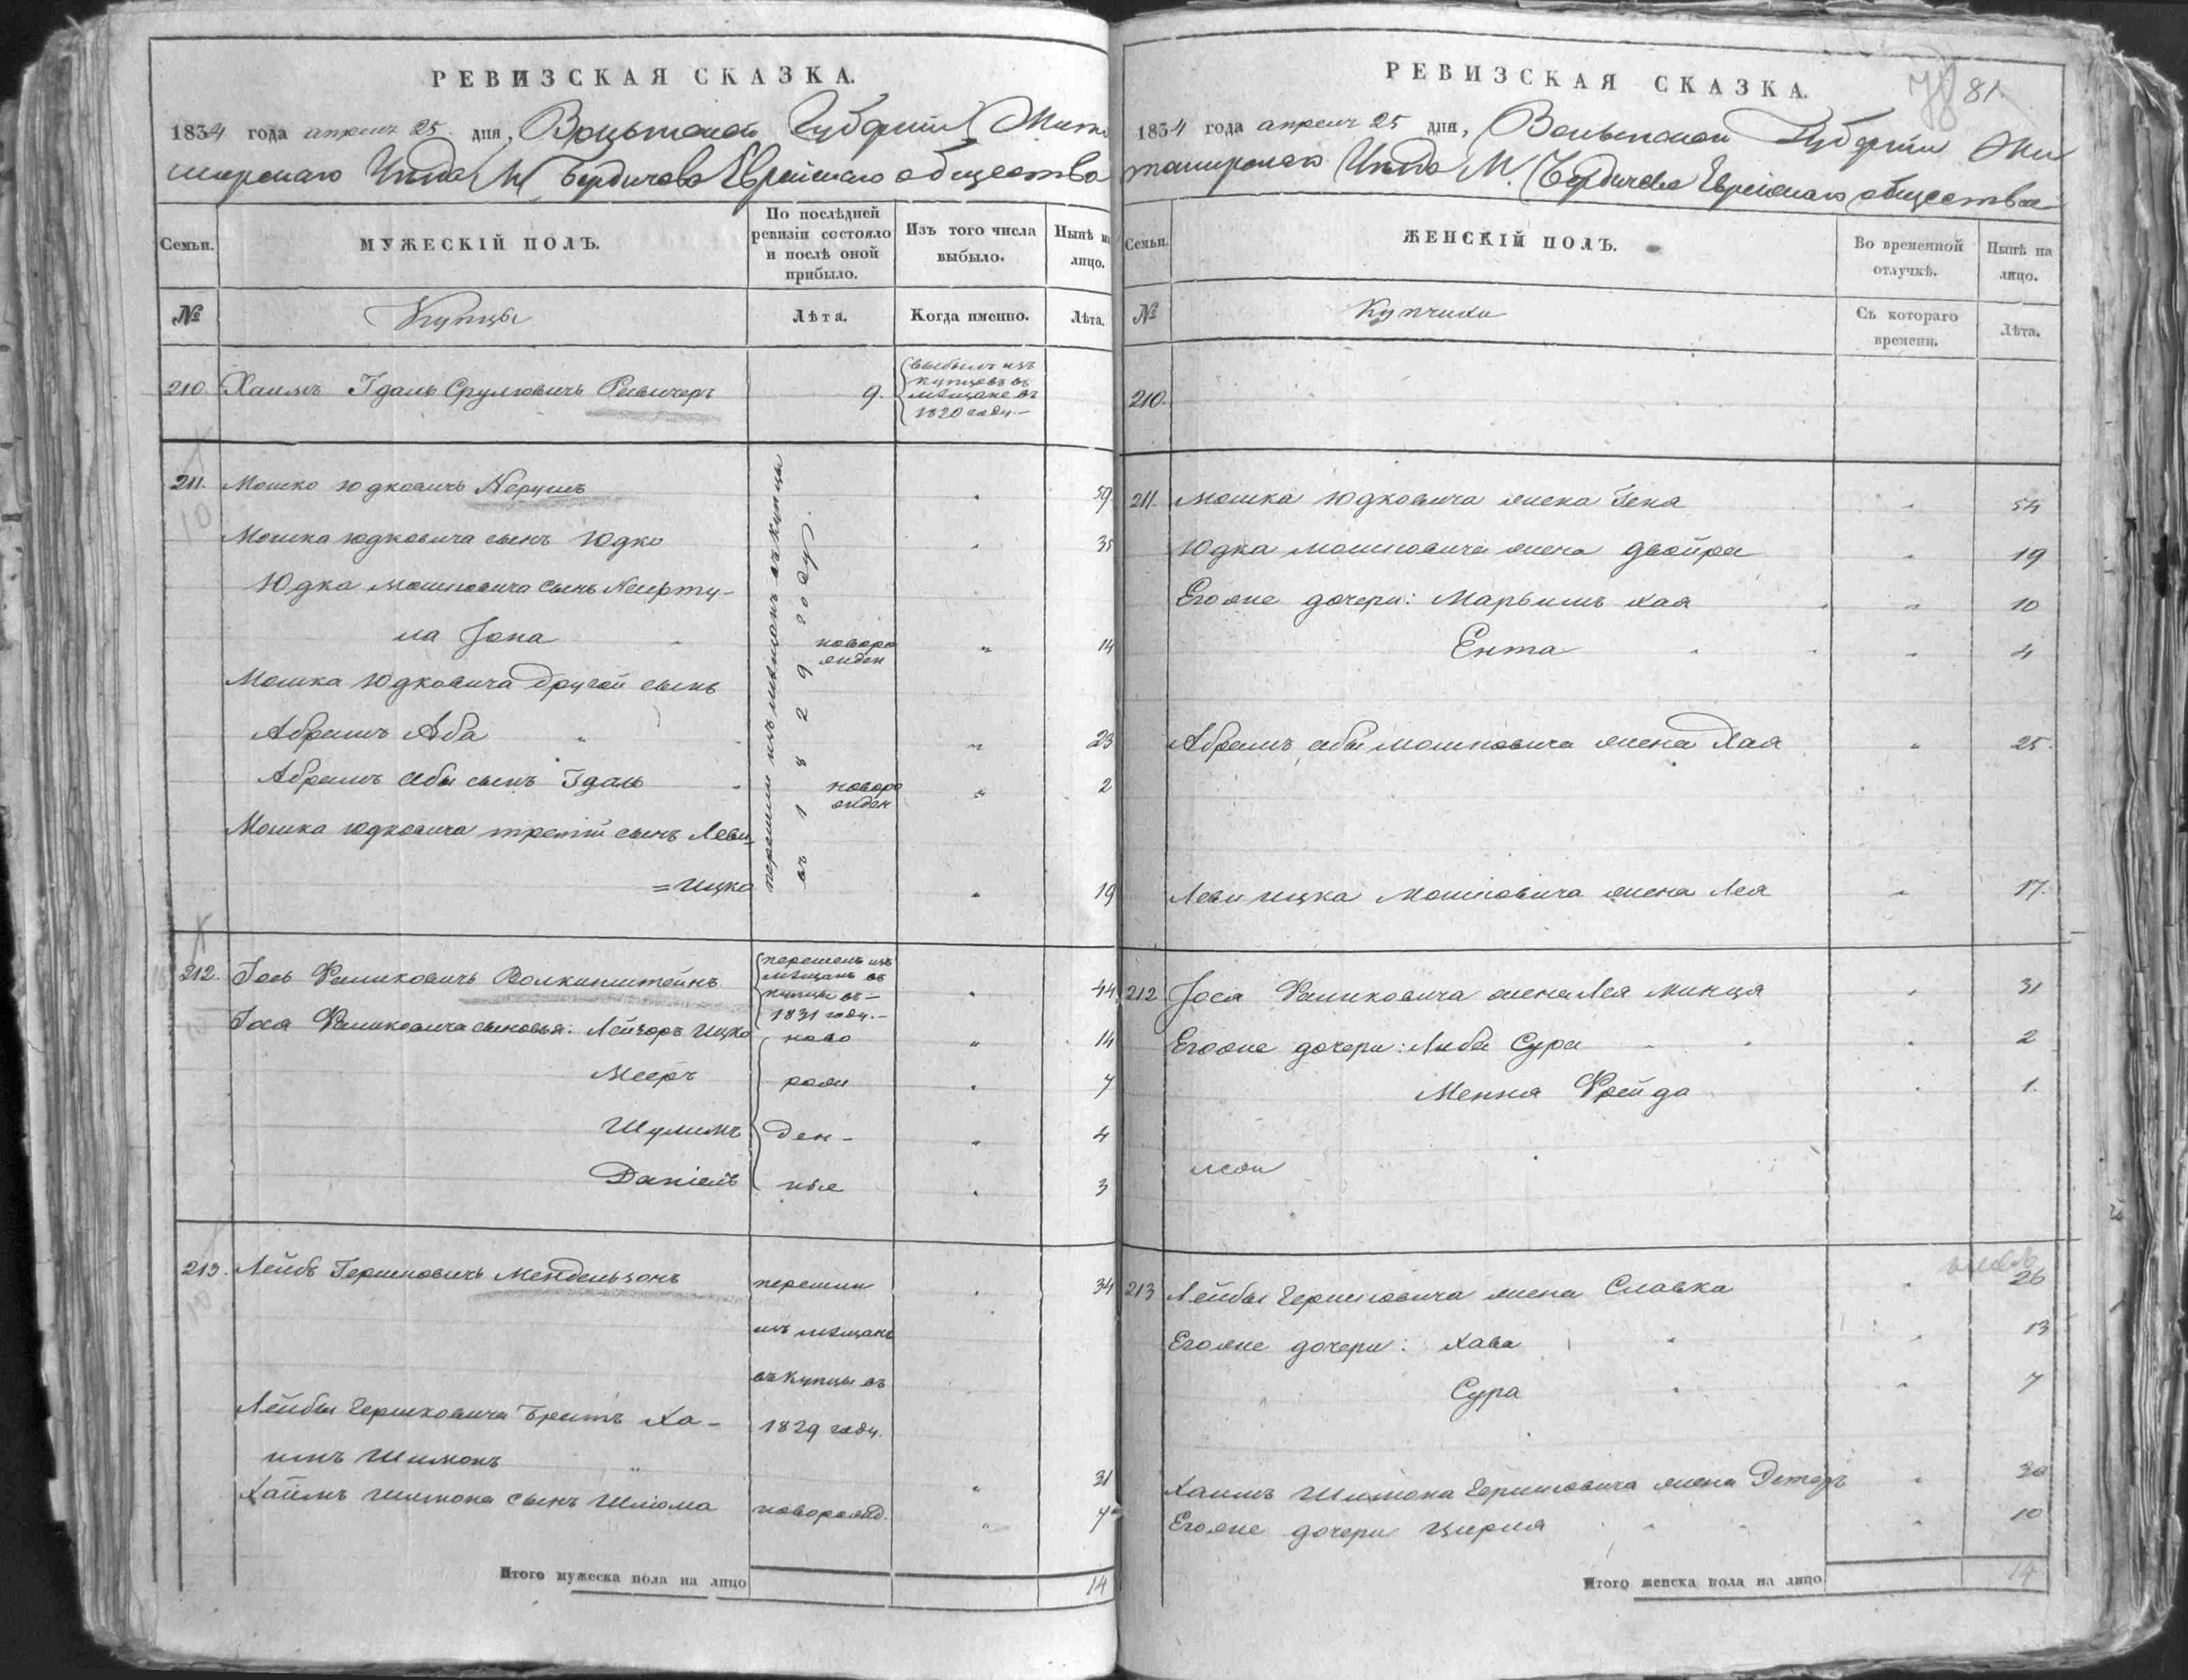 РЕВИЗСКАЯ СКАЗКА.
1834 года апреля 25 дня, Волынской Губерніи Жито
мирскаго Уезда М Бердичева Еврейскаго общества
Семьи.
МУЖЕСКІЙ ПОЛЪ.
По послѣдней
ревизіи состояло
и послѣ оной
прибыло.
Изъ того числа
выбыло.
Нынѣ на
лицо.
№
Купцы
Лѣта.
Когда именно.
Лѣта.
210. Хаимъ Идаль Срулювичъ 9. выбылъ изъ
купцовъ въ
мѣщане въ
1820 году.—
211. Мошко Юдковичъ 59
Мошка Юдковича сынъ Юдко 35
Юдка Мошковича сынъ
ла Іона новоро
жден 14
Мошка Юдковича другой сынъ
Абрамъ Аба 23
Абрамъ Абы сынъ Идаль новоро
жден 2
Мошка Юдковича третій сынъ Леви
=Ицко 19
перешли изъ мѣщанъ въ купцы
въ 1829 году.
212. Іось Фаликовичъ Волкинштейнъ перешелъ изъ
мѣщанъ въ
купцы въ—
1831 году.— 44
Іося Фаликовича сыновья: Лейзоръ Ицко ново 14
Мееръ рож 7
Шулимъ ден- 4
Даніель ные 3
213. Лейбъ Гершковичъ Мендельзонъ перешли 34
изъ мѣщанъ
въ купцы въ
Лейбы Гершковича братъ Ха- 1829 году.
имъ Шимонъ 31
Хаимъ Шимона сынъ Шліома новорожд. 7
Итого мужеска пола на лицо 14
РЕВИЗСКАЯ СКАЗКА.
81
1834 года апреля 25 дня, Волынской Губерніи Жи
томирскаго Уезда М. Бердичева Еврейскаго общества
Семьи.
ЖЕНСКІЙ ПОЛЪ.
Во временной
отлучкѣ.
Нынѣ на
лицо.
№
Купчихи
Съ котораго
времени.
Лѣта.
210.
211. Мошка Юдковича жена Гена 54
Юдка Мошковича жена Двойра 19
Его же дочери: Марьямъ Хая 10
Ента 4
Абрамъ Абы Мошковича жена Хая 25
Леви Ицка Мошковича жена Лея 17.
212 Іося Фаликовича жена Лея Минця 31
Его же дочери: Либа Сура 2
Мення Фрейда 1.
213 Лейбы Гершковича жена Славка 26
Его же дочери: Хава 13
Сура 7
Хаимъ Шимона Гершковича жена 30
Его же дочери Цирля 10
Итого женска пола на лицо 14